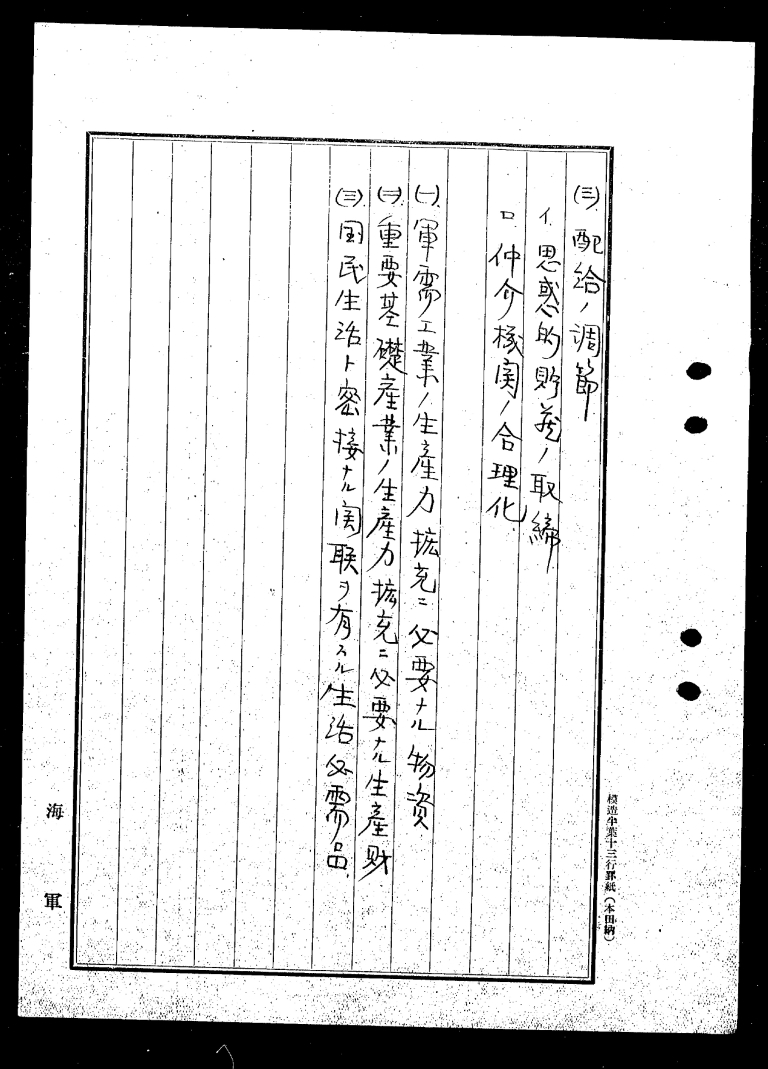 ㈢ 配給ノ調節
イ 思惑的貯蔵ノ取締
ロ 仲介機関ノ合理化
㈠ 軍需工業ノ生産力拡充ニ必要ナル物資
㈡ 重要基礎産業ノ生産力拡充ニ必要ナル生産財
㈢ 国民生活ト密接ナル関联ヲ有スル生活必需品
模造半葉十三行罫紙(本田納)
海軍